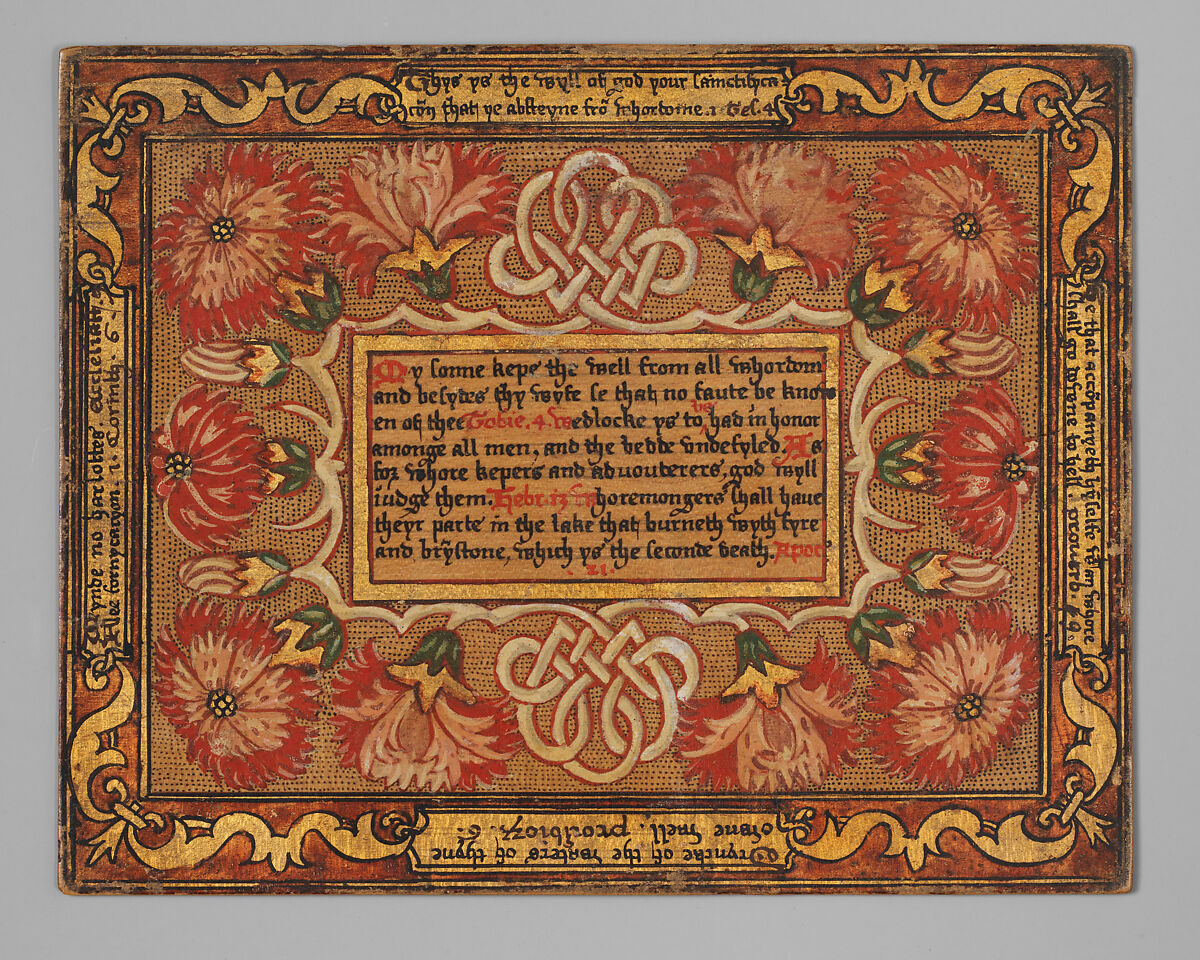 Thys ys the wyll of god your sainctifica
cõn that ye absteyne frõ whordome. 1 Tes. 4
My sonne kepe the well from all whordom
and besydes thy wyfe se that no faute be know
en of thee Tobie. 4. Wedlocke ys to be had in honor
amonge all men, and the bedde vndefyled. As
for whore kepers and aduouterers, god wyll
iudge them. Hebr. 13 Whoremongers shall haue
theyr parte in the lake that burneth wyth fyre
and brȳstone, which ys the seconde death. Apoc
.21.
He that accõpanyeth hȳselfe wt an whore
shall go downe to hell. prouerb
Dryncke of the waters of thyne
owne well. prouerbiorȝ.
no harlottes. Ecclesiast.
fornycacyon. 1. Corinth. 6